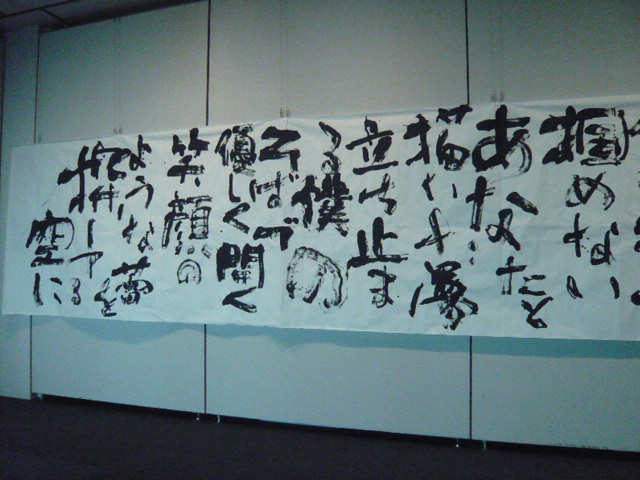 掴めない
あなたと
描いた夢
立ち止ま
る僕の
そばで
優しく開く
笑顔の
ような蕾を
探してる
空に